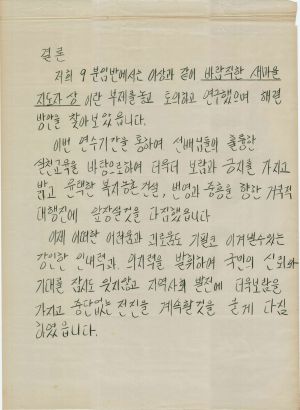 결론
저희 9분임반에서는 이상과 같이 바람직한 새마을
지도자 상 이란 부제를 놓고 토의하고 연구했으며 해결
방안을 찾아보았읍니다.
이번 연수기간을 통하여 선배님들의 훌륭한
실천교육을 바탕으로하여 더우더 보람과 긍지를 가지고
밝고 윤택한 복지농촌건설, 번영과 중흥을 향한 거국적
대행진에 앞장설것을 다짐했읍니다
이제 어떠한 어려움과 괴로움도 기필코 이겨낼수있는
강인한 인내력과 의지력을 발휘하여 국민의 신뢰와
기대를 잠시도 잊지않고 지역사회 발전에 더욱보람을
가지고 중단없는 전진을 계속할것을 굳게 다짐
하였읍니다.